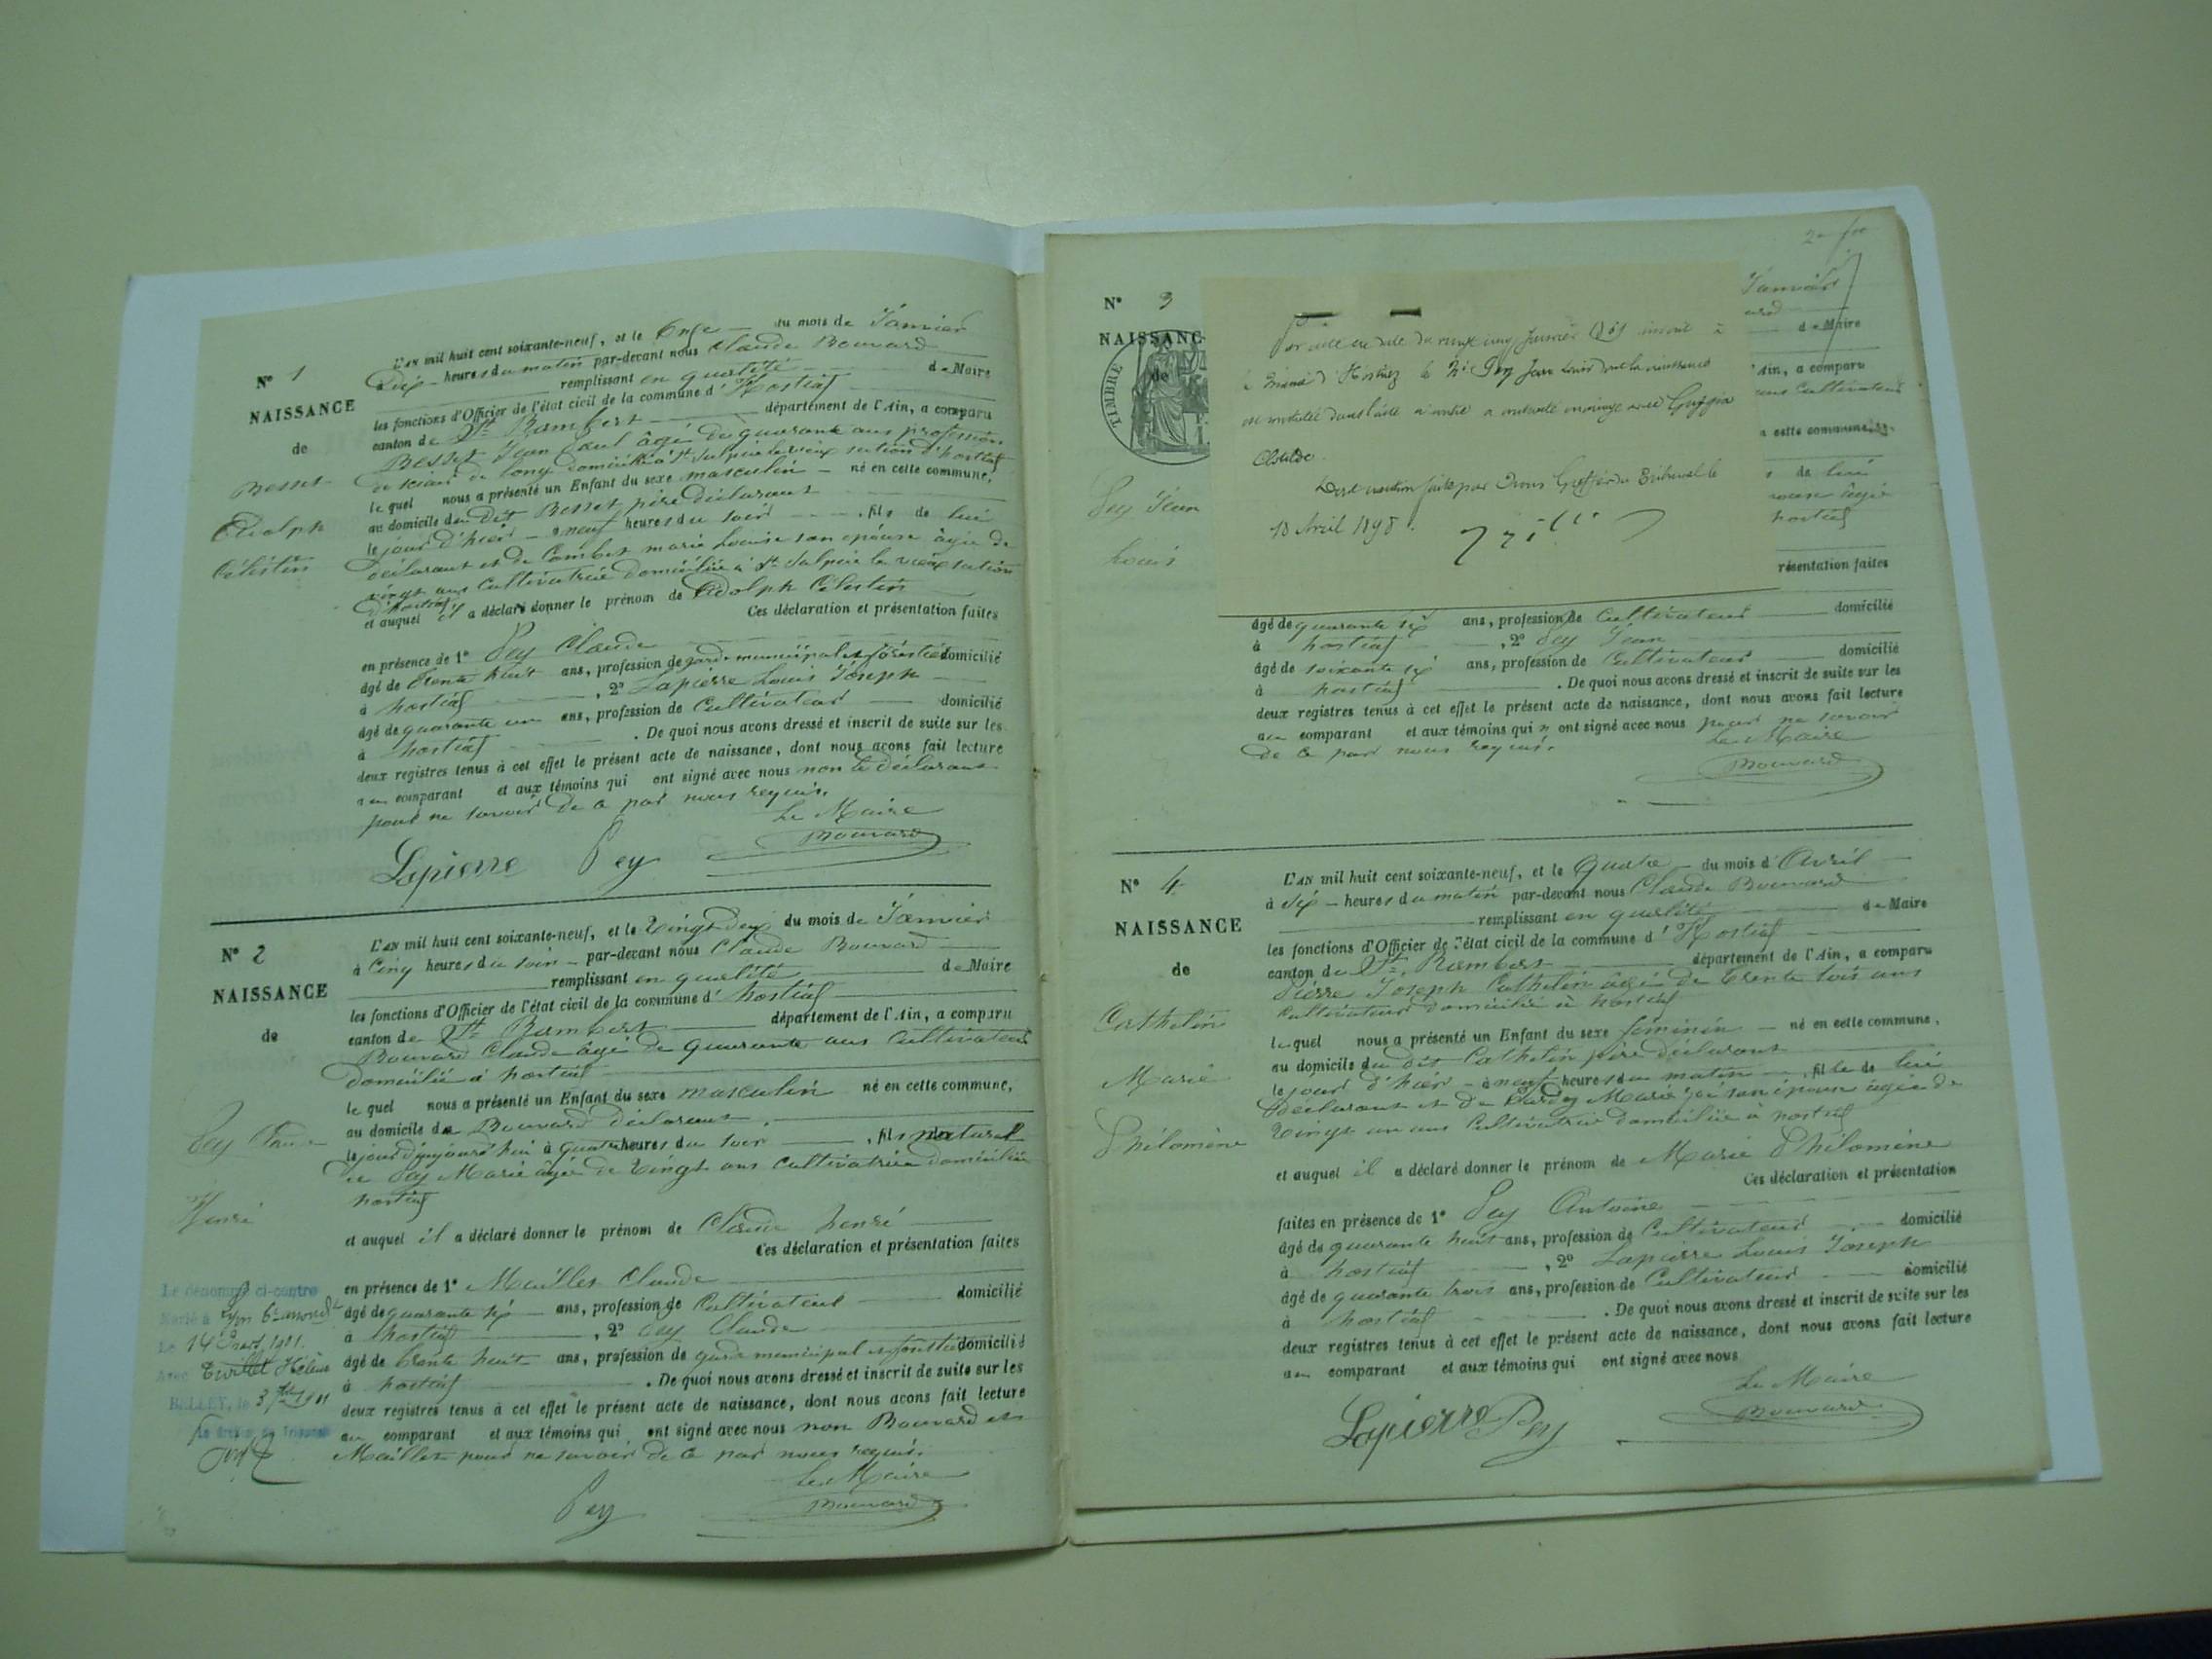 N° 1
NAISSANCE
de
Besset
Adolph
Célestin
L'AN mil huit cent soixante-neuf, et le Onze du mois de Janvier
à dix heures du matin par-devant nous Claude Bouvard
remplissant en qualité de Maire
les fonctions d'Officier de l'état civil de la commune d'Hostiaz
canton de St Rambert département de l'Ain, a comparu
Besset Jean Paul âgé de quarante ans profession
de scieur de long domicilié à St Sulpice le vieux section d'hostiaz
le quel nous a présenté un Enfant du sexe masculin né en cette commune,
au domicile du Dit Besset père déclarant
le jour d'hier à neuf heures du soir, fils de lui
déclarant et de Combet marie Louise son épouse âgée de
vingt ans Cultivatrice domiciliée à St Sulpice le vieux section
d'hostiaz
et auquel il a déclaré donner le prénom de Adolph Célestin
Ces déclaration et présentation faites
en présence de 1° Pey Claude
âgé de trente huit ans, profession de garde municipal et forestier domicilié
à hostiaz, 2° Lapierre Louis Joseph
âgé de quarante un ans, profession de Cultivateur domicilié
à hostiaz. De quoi nous avons dressé et inscrit de suite sur les
deux registres tenus à cet effet le présent acte de naissance, dont nous avons fait lecture
au comparant et aux témoins qui ont signé avec nous non le déclarant
pour ne savoir de ce par nous requis.
Le Maire
Lapierre Pey Bouvard
N° 2
NAISSANCE
de
Pey Claude
Henri
L'AN mil huit cent soixante-neuf, et le Vingt deux du mois de Janvier
à Cinq heures du soir par-devant nous Claude Bouvard
remplissant en qualité de Maire
les fonctions d'Officier de l'état civil de la commune d'hostiaz
canton de St Rambert département de l'Ain, a comparu
Bouvard Claude âgé de quarante ans Cultivateur
domicilié à hostiaz
le quel nous a présenté un Enfant du sexe masculin né en cette commune,
au domicile de Bouvard déclarant
le jour d'aujourd'hui à quatre heures du soir, fils naturel
de Pey Marie âgée de Vingt ans cultivatrice domiciliée
hostiaz
et auquel il a déclaré donner le prénom de Claude henri
Ces déclaration et présentation faites
en présence de 1° Maillet Claude
âgé de quarante six ans, profession de Cultivateur domicilié
à hostiaz, 2° Pey Claude
âgé de trente huit ans, profession de garde municipal et forestier domicilié
à hostiaz. De quoi nous avons dressé et inscrit de suite sur les
deux registres tenus à cet effet le présent acte de naissance, dont nous avons fait lecture
au comparant et aux témoins qui ont signé avec nous non Bouvard et
Maillet pour ne savoir de ce par nous requis.
Le Maire
Pey Bouvard
Le dénommé ci-contre
Marié à Lyon 6e arrondt
Le 14 1901
Avec Hélène
BELLEY, le 3 1901
Le Greffier du Tribunal
N° 3
NAISSANC
de
TIMBRE
Pey Jean
Louis
Par acte en date du vingt cinq Janvier inscrit à
la Mairie d'Hostiaz le Sr Pey Jean Louis dont la naissance
est constatée dans l'acte ci contre a contracté mariage avec
Clotilde
Dont mention faite par nous Greffier du Tribunal le
18 Avril 1898.
Janvier
de Maire
Ain, a comparu
Cultivateur
cette commune,
de lui
âgée
hostiaz
résentation faites
âgé de quarante six ans, profession de Cultivateur domicilié
à hostiaz, 2° Pey Jean
âgé de soixante six ans, profession de Cultivateur domicilié
à hostiaz. De quoi nous avons dressé et inscrit de suite sur les
deux registres tenus à cet effet le présent acte de naissance, dont nous avons fait lecture
au comparant et aux témoins qui n'ont signé avec nous pour ne savoir
de ce par nous requis.
Le Maire
Bouvard
N° 4
NAISSANCE
de
Cathelin
Marie
Philomène
L'AN mil huit cent soixante-neuf, et le Quatre du mois d'Avril
à dix heures du matin par-devant nous Claude Bouvard
remplissant en qualité de Maire
les fonctions d'Officier de l'état civil de la commune d'Hostiaz
canton de St Rambert département de l'Ain, a comparu
Pierre Joseph Cathelin âgé de trente trois ans
Cultivateur domicilié à hostiaz
le quel nous a présenté un Enfant du sexe féminin né en cette commune,
au domicile du Dit Cathelin père déclarant
le jour d'hier à neuf heures du matin, fille de lui
déclarant et de Marie son épouse âgée de
Vingt un ans Cultivatrice domiciliée à hostiaz
et auquel il a déclaré donner le prénom de Marie Philomène
Ces déclaration et présentation
faites en présence de 1° Pey Antoine
âgé de quarante huit ans, profession de Cultivateur domicilié
à hostiaz, 2° Lapierre Louis Joseph
âgé de quarante trois ans, profession de Cultivateur domicilié
à hostiaz. De quoi nous avons dressé et inscrit de suite sur les
deux registres tenus à cet effet le présent acte de naissance, dont nous avons fait lecture
au comparant et aux témoins qui ont signé avec nous
Le Maire
Lapierre Pey Bouvard